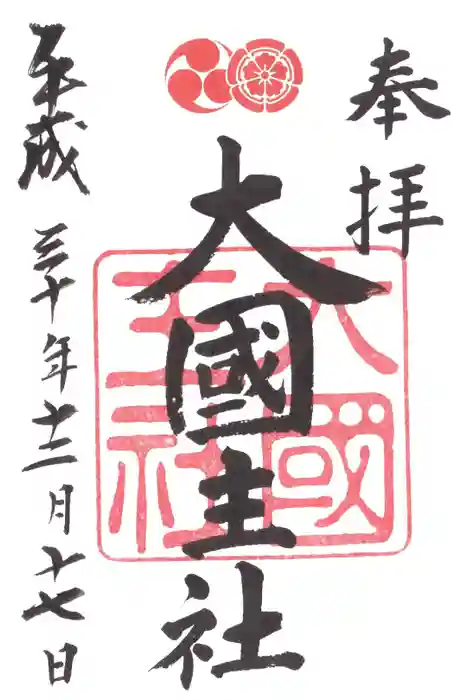 奉拝
大國主社
平成三十年十二月十七日
大国主社